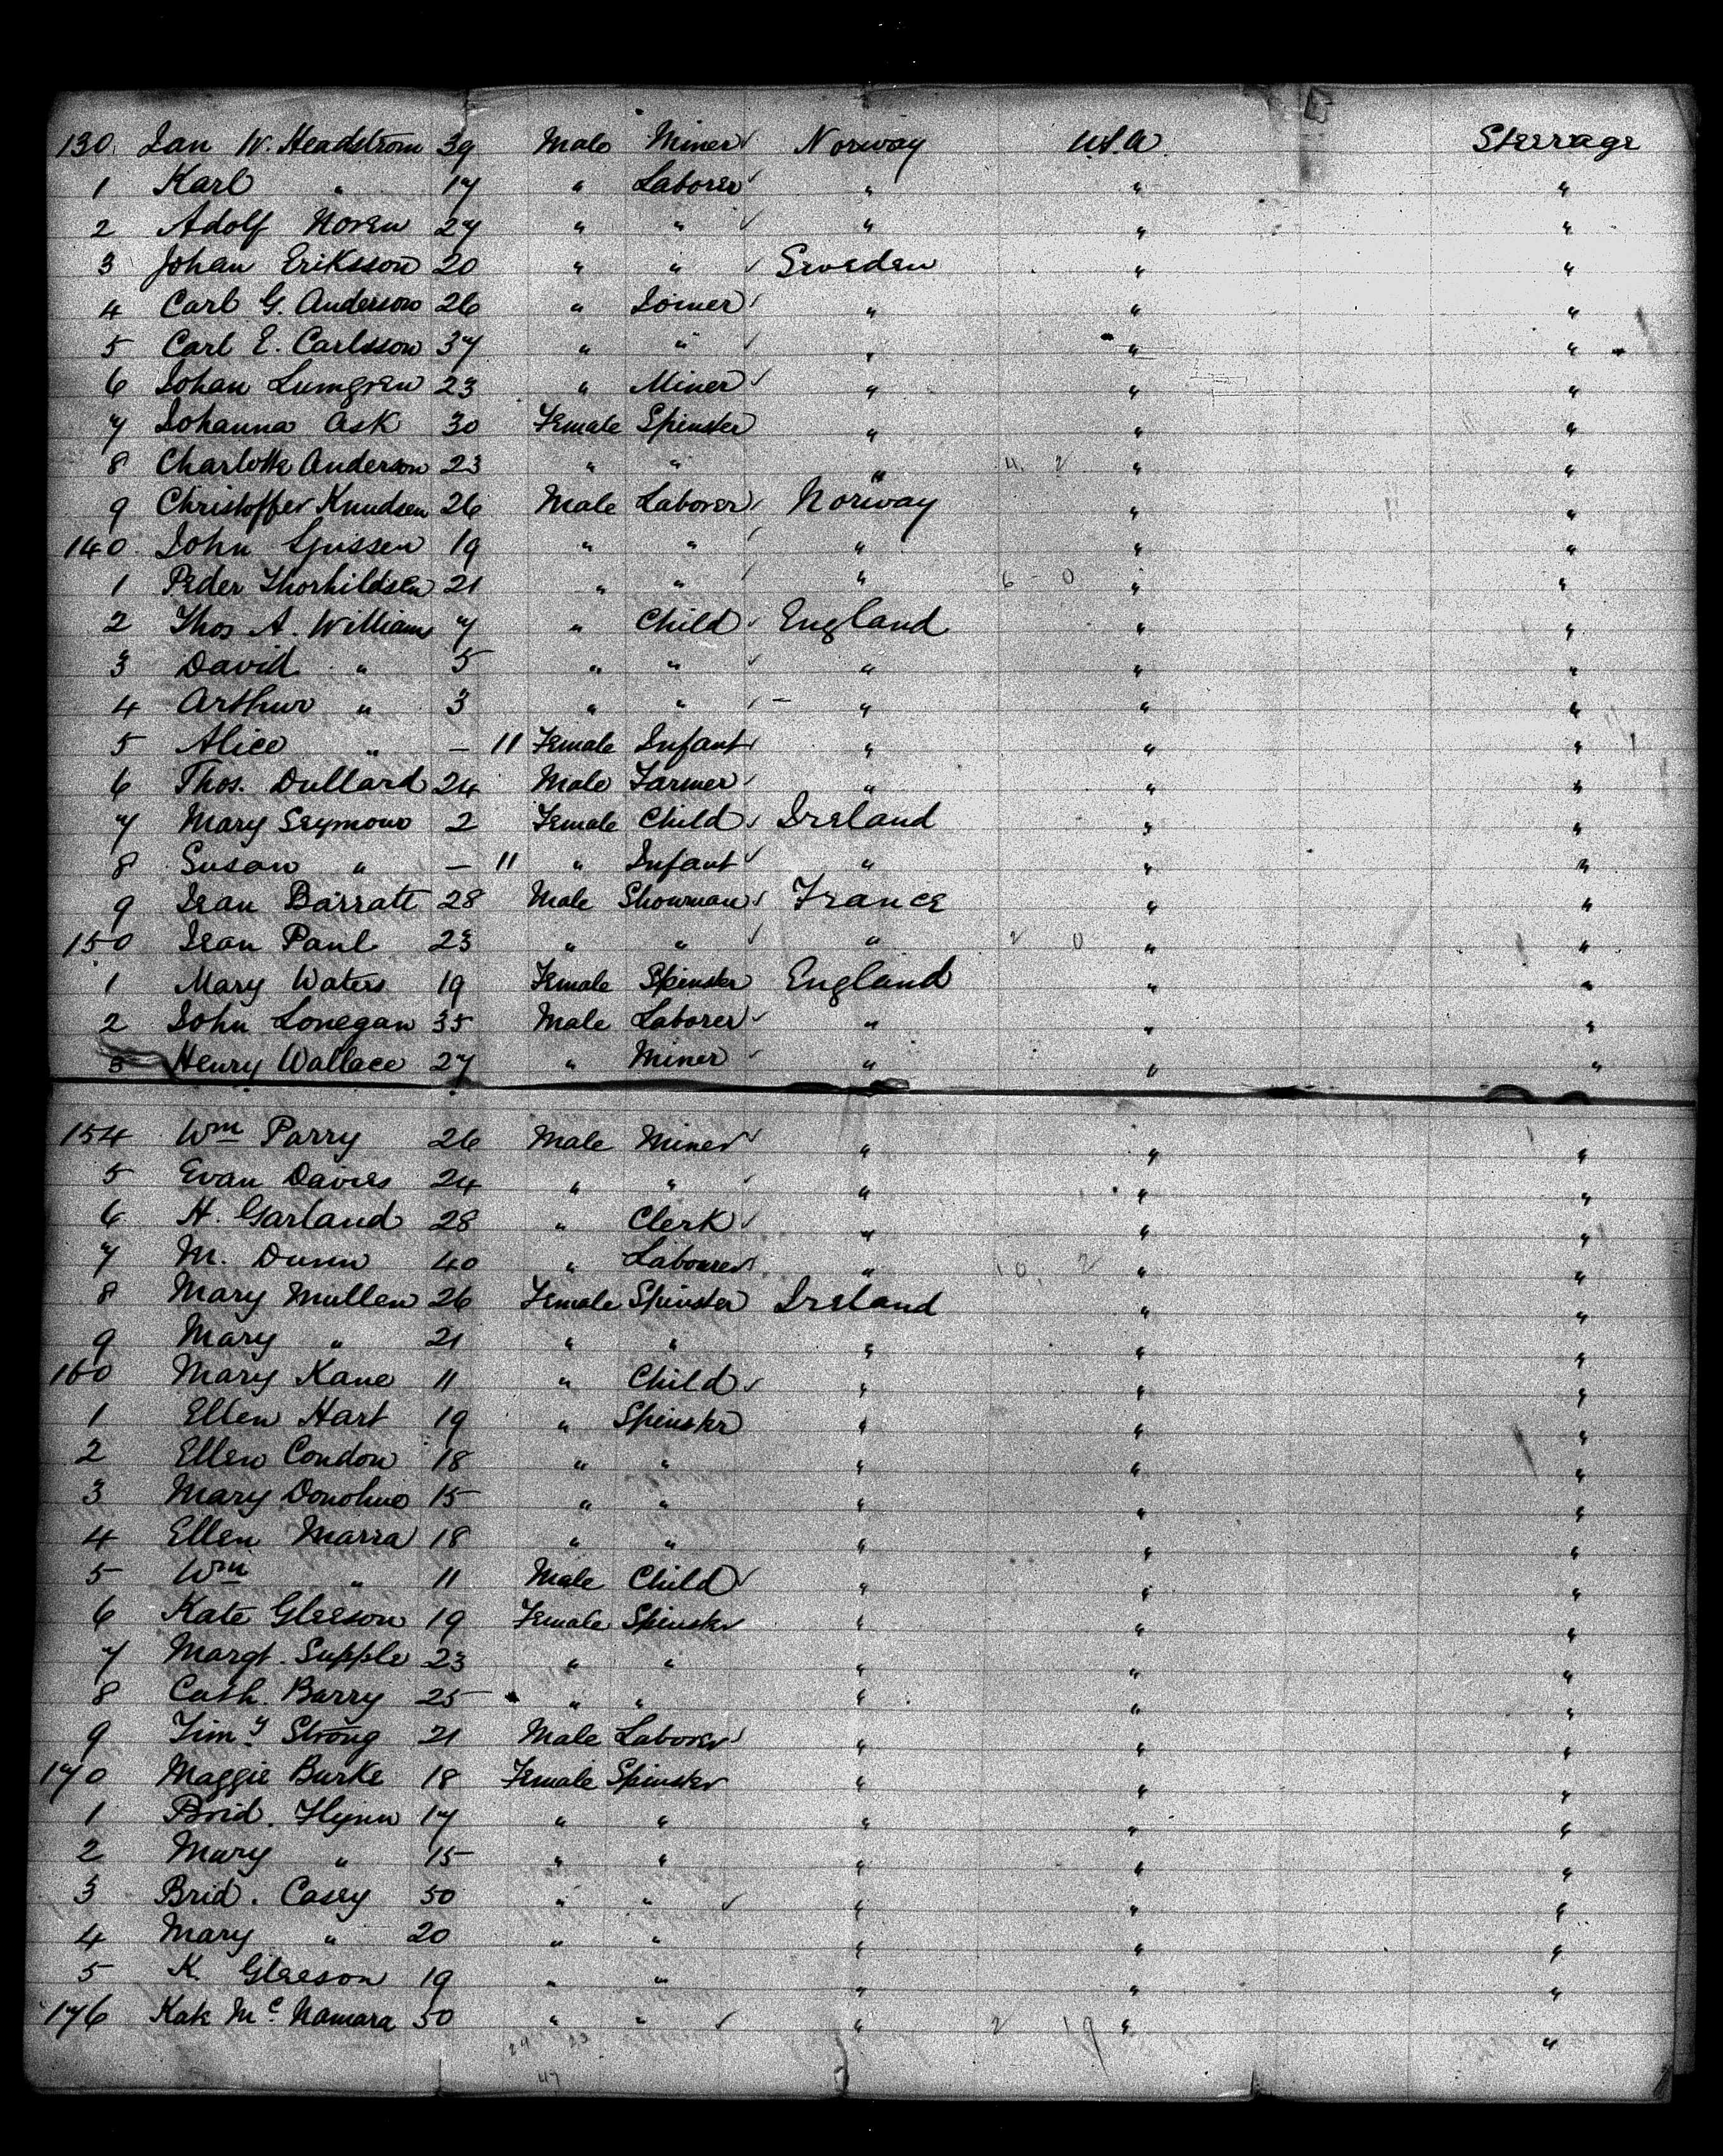 130. Jan W. Headstrom 39 Male Miner Norway U.S.A. Steerage
1 Karl " 17 " Laborer " " "
2 Adolf Noren 27 " " " " "
3 Johan Eriksson 20 " " Sweden " "
4 Carl G. Anderson 26 " Joiner " " "
5 Carl E. Carlsson 37 " " " " "
6 Johan Lumgren 23 " Miner " " "
7 Johanna Ask 30 Female Spinster " " "
8 Charlotte Anderson 23 " " " 4. 2 " "
9 Christoffer Knudsen 26 Male Laborer Norway " "
140. John Gussen 19 " " " " "
1 Peder Thorhildsen 21 " " " 6 - 0 " "
2 Thos A. Williams 7 " Child England " "
3 David " 5 " " " " "
4 Arthur " 3 " " - " " "
5 Alice " - 11 Female Infant " " "
6 Thos. Dullard 24 Male Farmer " " "
7 Mary Seymour 2 Female Child Ireland " "
8 Susan " - 11 " Infant " " "
9 Jean Barratt 28 Male Showman France " "
150 Jean Paul 23 " " " 2 0 " "
1 Mary Waters 19 Female Spinster England " "
2 John Lonegan 35 Male Laborer " " "
3 Henry Wallace 27 " Miner " " "
154 Wm Parry 26 Male Miner " " "
5 Evan Davies 24 " " " " "
6 H. Garland 28 " Clerk " " "
7 M. Dunn 40 " Labourer " 10. 2 " "
8 Mary Mullen 26 Female Spinster Ireland " "
9 Mary " 21 " " " " "
160 Mary Kane 11 " Child " " "
1 Ellen Hart 19 " Spinster " " "
2 Ellen Condon 18 " " " " "
3 Mary Donohue 15 " " " " "
4 Ellen Marra 18 " " " " "
5 Wm " 11 Male Child " " "
6 Kate Gleeson 19 Female Spinster " " "
7 Margt. Supple 23 " " " " "
8 Cath. Barry 25 " " " " "
9 Timy Strong 21 Male Laborer " " "
170 Maggie Burke 18 Female Spinster " " "
1 Brid. Flynn 17 " " " " "
2 Mary " 15 " " " " "
3 Brid. Casey 50 " " " " "
4 Mary " 20 " " " " "
5 K. Gleeson 19 " " " " "
176 Kate Mc Namara 50 " " " 2 19 " "
24 23
47